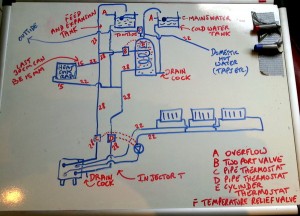 FEED
AND EXPANSION
TANK
A
A
MAINS WATER
COLD WATER
TANK
OUTSIDE
22
22
28
28
DOMESTIC
HOT
WATER
(TAPS ETC)
DRAIN
COCK
28
28
22
22
22
28
28
22
DRAIN
COCK
INJECTOR T
A OVERFLOW
B TWO PORT VALVE
C PIPE THERMOSTAT
D PIPE THERMOSTAT
E CYLINDER
THERMOSTAT
F TEMPERATURE RELIEF VALVE